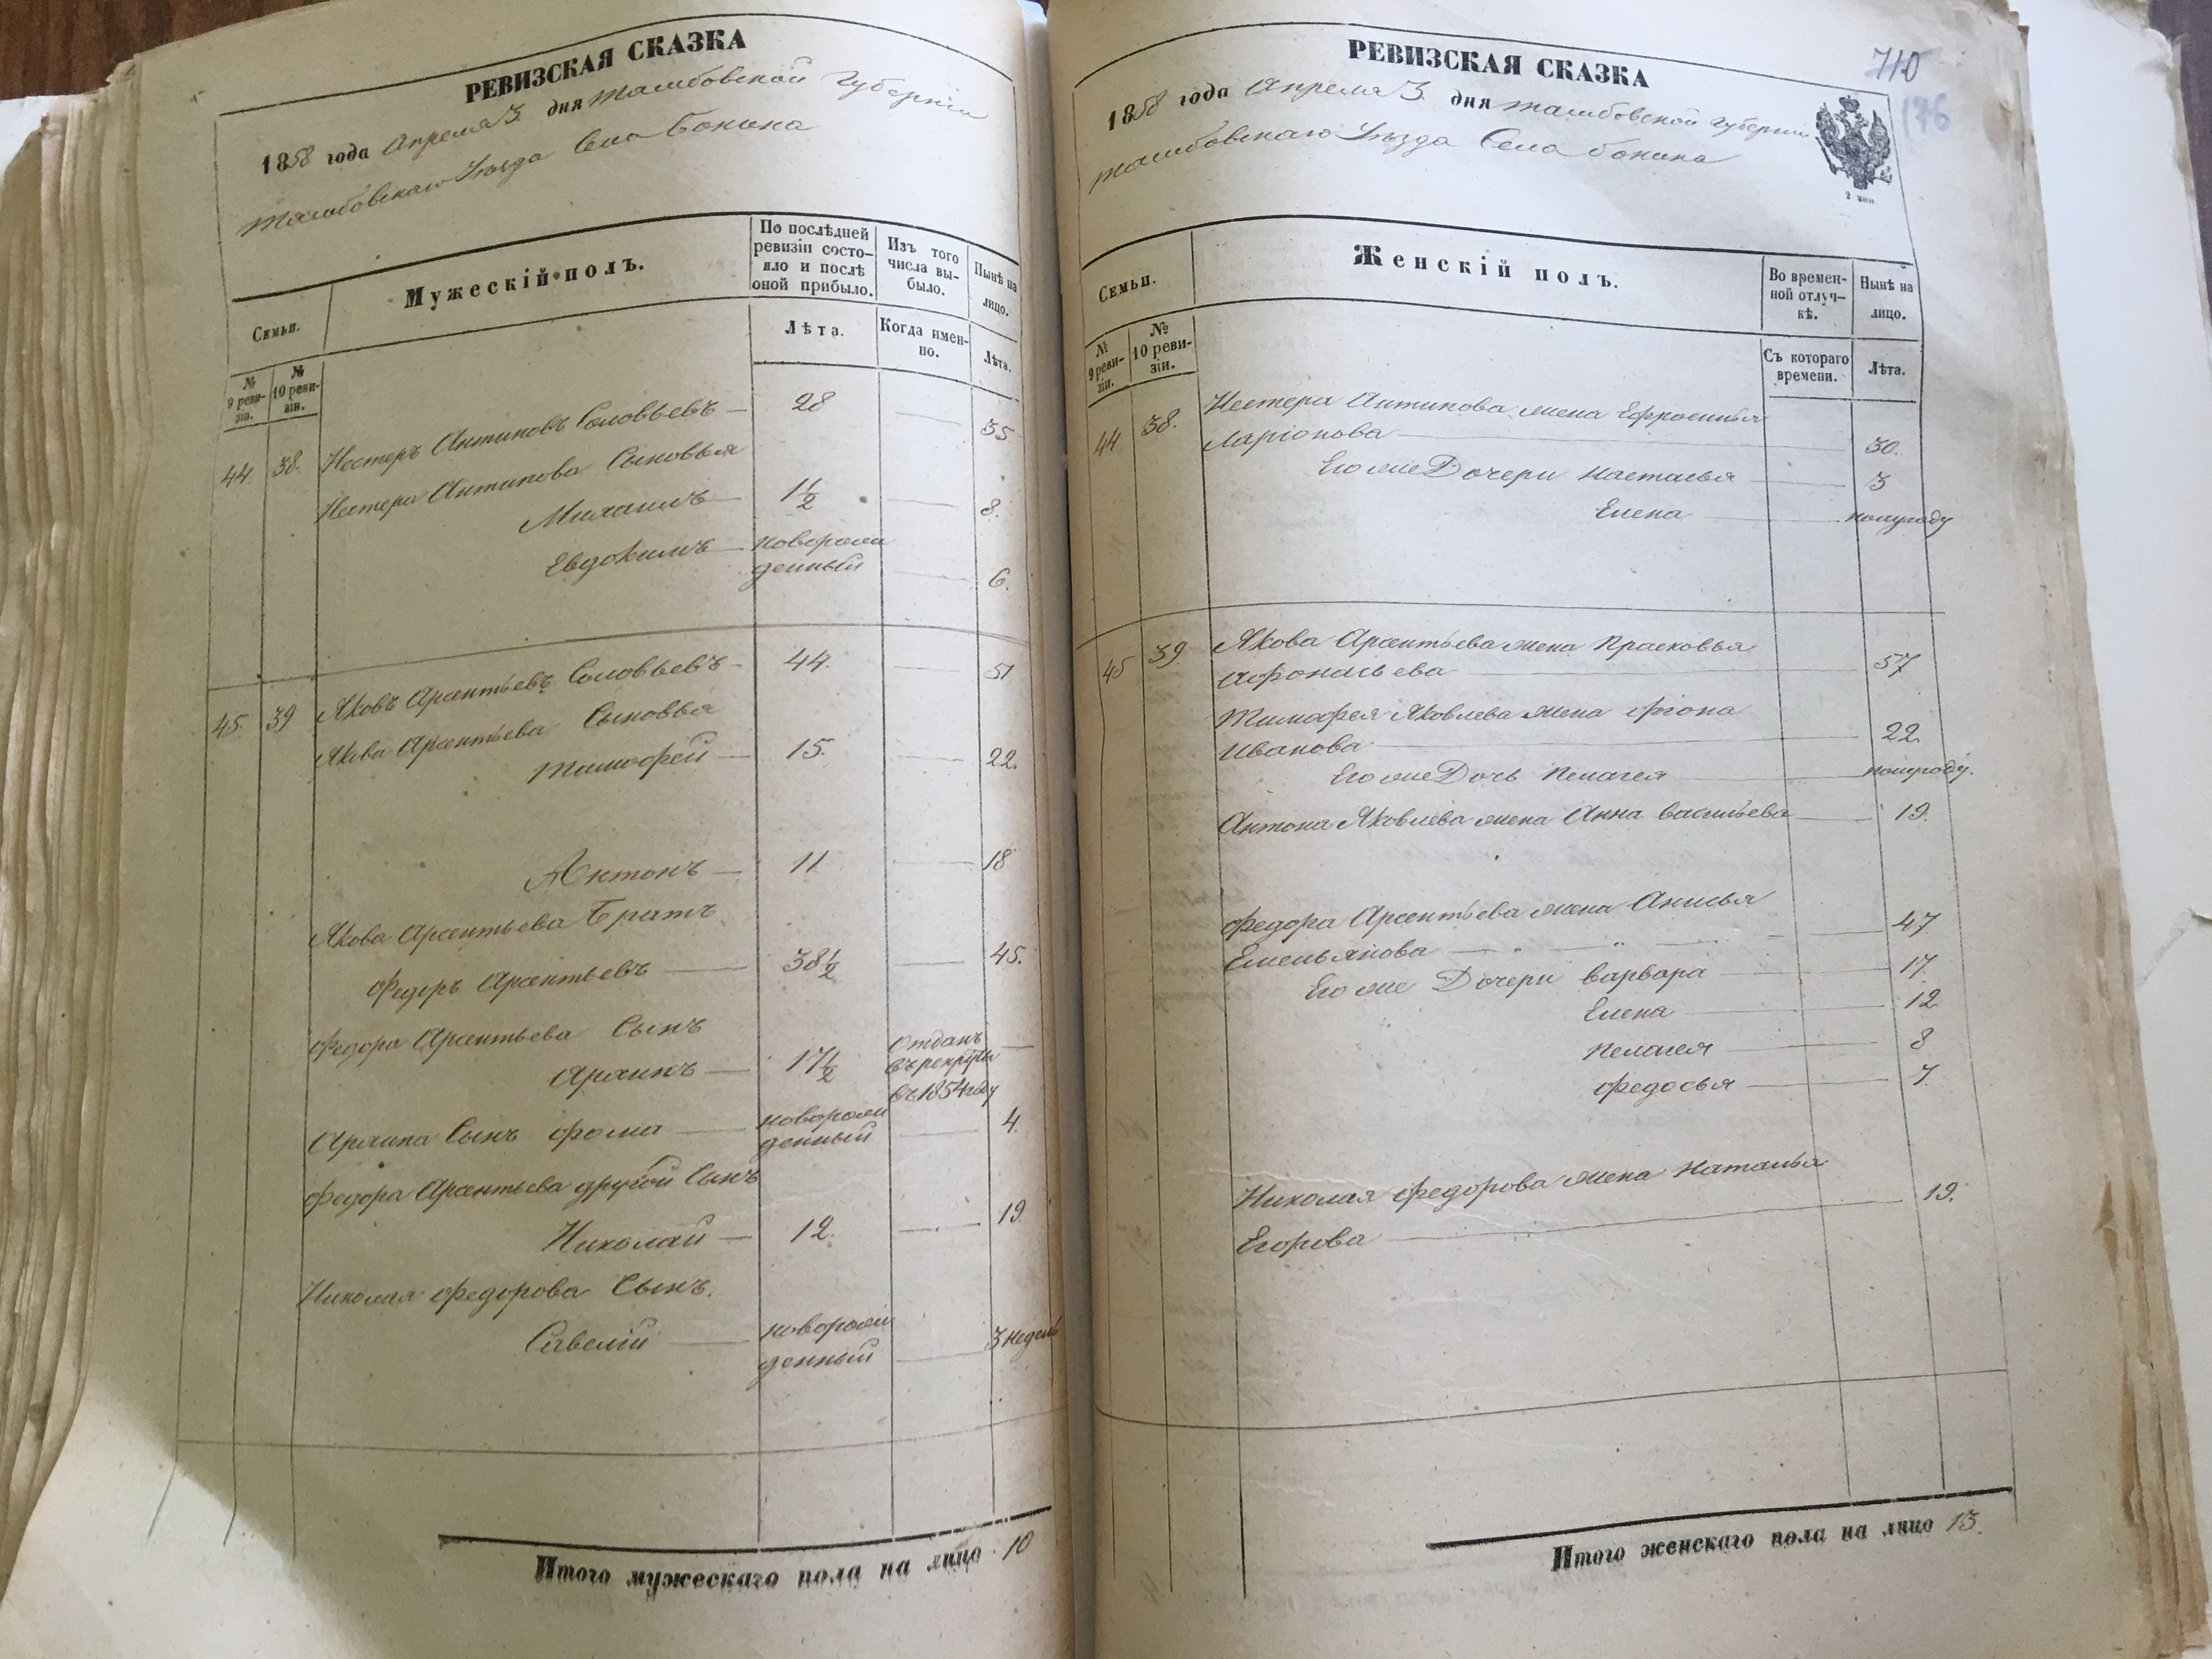 РЕВИЗСКАЯ СКАЗКА
1858 года Апреля 3 дня Тамбовской Губернiи
Тамбовскаго Уѣзда Села Бокина
Семьи.
Мужескiй полъ.
По послѣдней ревизiи состо-
яло и послѣ
оной прибыло.
Изъ того
числа вы-
было.
Нынѣ на
лицо.
№
9 реви-
зiи.
№
10 реви-
зiи.
Лѣта.
Когда имен-
но.
Лѣта.
44. 38. Нестеръ Антиповъ Соловьевъ — 28 — 35.
Нестера Антипова Сыновья
Михаилъ — 1½ — 8.
Евдокимъ — новорож
денный — 6.
45. 39 Яковъ Арсентьевъ Соловьевъ — 44. — 51
Якова Арсентьева Сыновья
Тимофей — 15. — 22.
Антонъ — 11 — 18
Якова Арсентьева Братъ
Федоръ Арсентьевъ — 38½ — 45.
Федора Арсентьева Сынъ
Архипъ — 17½ Отданъ
въ рекруты
въ 1854 году —
Архипа Сынъ Фома — новорож
денный — 4.
Федора Арсентьева другой Сынъ
Николай — 12. — 19.
Николая Федорова Сынъ.
Савелiй — новорож
денный — 3 недель
Итого мужескаго пола на лицо 10
РЕВИЗСКАЯ СКАЗКА
710
176
1858 года Апреля 3. дня Тамбовской Губернiи
Тамбовскаго Уѣзда Села Бокина
2 коп.
Семьи.
Женскiй полъ.
Во времен-
ной отлуч-
кѣ.
Нынѣ на
лицо.
№
9 реви-
зiи.
№
10 реви-
зiи.
Съ котораго
времени.
Лѣта.
44 38. Нестера Антипова жена Ефросинья
Ларiонова — 30.
Его же Дочери Настасья — 3
Елена — полугоду
45 39. Якова Арсентьева жена Прасковья
Афонасьева — 57
Тимофея Яковлева жена
Иванова — 22.
Его же Дочь Пелагея — полугоду.
Антона Яковлева жена Анна Васильева — 19.
Федора Арсентьева жена Анисья
Емельянова — 47
Его же Дочери Варвара — 17.
Елена — 12
Пелагея — 8
Федосья — 7.
Николая Федорова жена Наталья
Егорова — 19.
Итого женскаго пола на лицо 13.